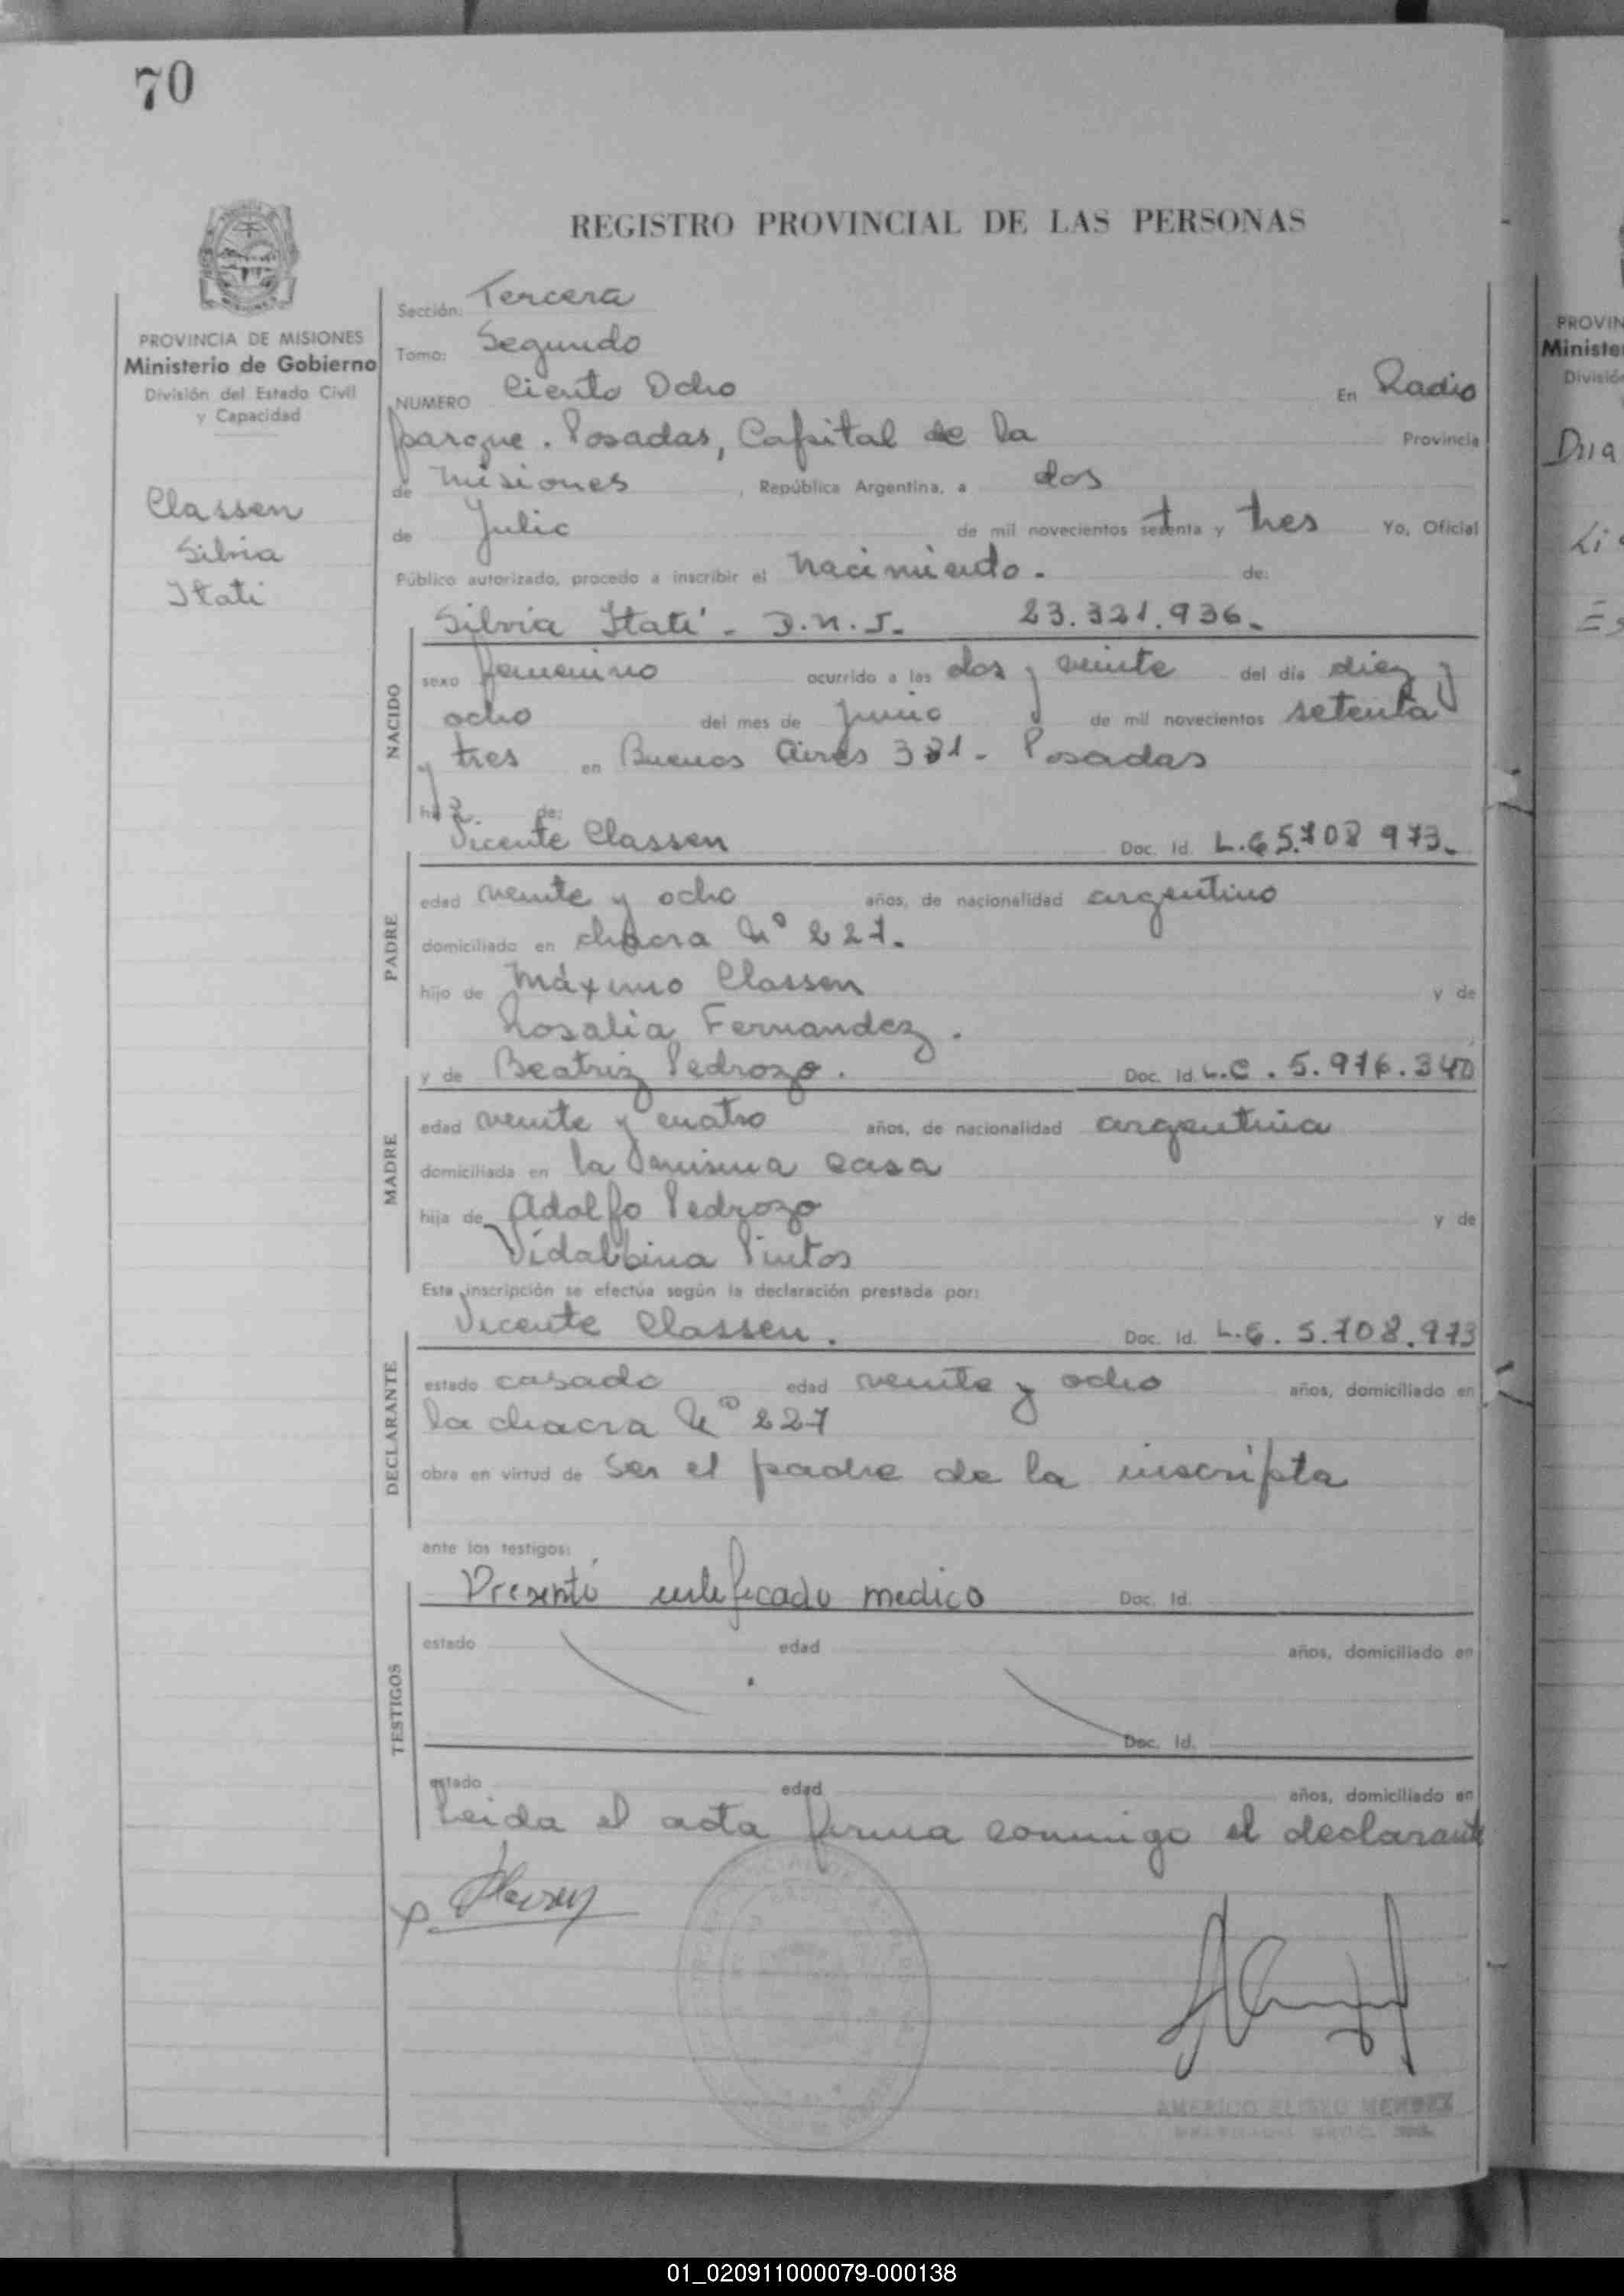 70
REGISTRO PROVINCIAL DE LAS PERSONAS
PROVINCIA DE MISIONES
Ministerio de Gobierno
División del Estado Civil
y Capacidad
Classen
Silvia
Itati
Sección: Tercera
Tomo: Segundo
NUMERO Ciento Ocho En Radio
parque. Posadas, Capital de la Provincia
de Misiones, República Argentina, a dos
de Julio de mil novecientos setenta y tres Yo, Oficial
Público autorizado, procedo a inscribir el nacimiento. de:
Silvia Itatí - D.N.I. 23.321.936.
NACIDO
sexo femenino ocurrido a las dos y veinte del día diez y
ocho del mes de junio de mil novecientos setenta
y tres en Buenos Aires 381 - Posadas
hija de:
Vicente Classen Doc. Id. L.E 5.708 973.
PADRE
edad veinte y ocho años, de nacionalidad argentino
domiciliado en chacra Nº 227.
hijo de Máximo Classen y de
Rosalia Fernandez.
y de Beatriz Pedrozo. Doc. Id. L.C. 5.976.340
MADRE
edad veinte y cuatro años, de nacionalidad argentina
domiciliada en la misma casa
hija de Adolfo Pedrozo y de
Vidalbina Pintos
Esta inscripción se efectúa según la declaración prestada por:
Vicente Classen. Doc. Id. L.E. 5.708.973
DECLARANTE
estado casado edad veinte y ocho años, domiciliado en
la chacra Nº 227
obra en virtud de ser el padre de la inscripta
ante los testigos:
Presentó certificado medico Doc. Id.
TESTIGOS
estado edad años, domiciliado en
Doc. Id.
estado edad años, domiciliado en
Leida el acta firma conmigo el declarante
AMERICO ELISEO MENDEZ
PROVIN
Minister
Divisió
01_020911000079-000138